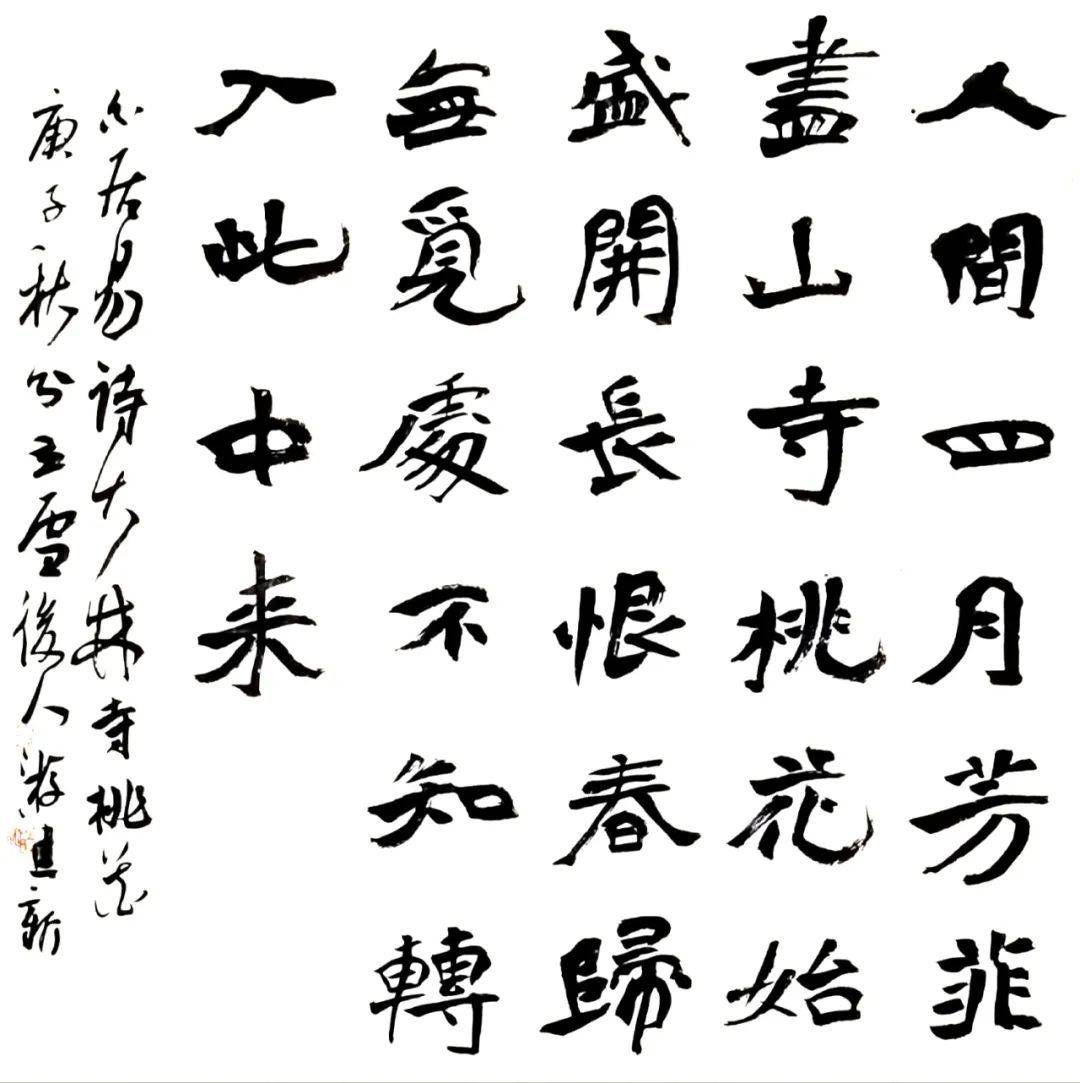 人間四月芳菲
盡山寺桃花始
盛開長恨春歸
無覓處不知轉
入此中来
白居易詩大林寺桃花
庚子秋分立雪後人游建新